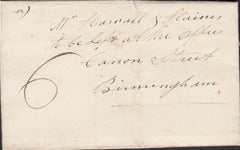 Mr Harwall & Haines
to be left at the Office
Cannon Street
Birmingham
6